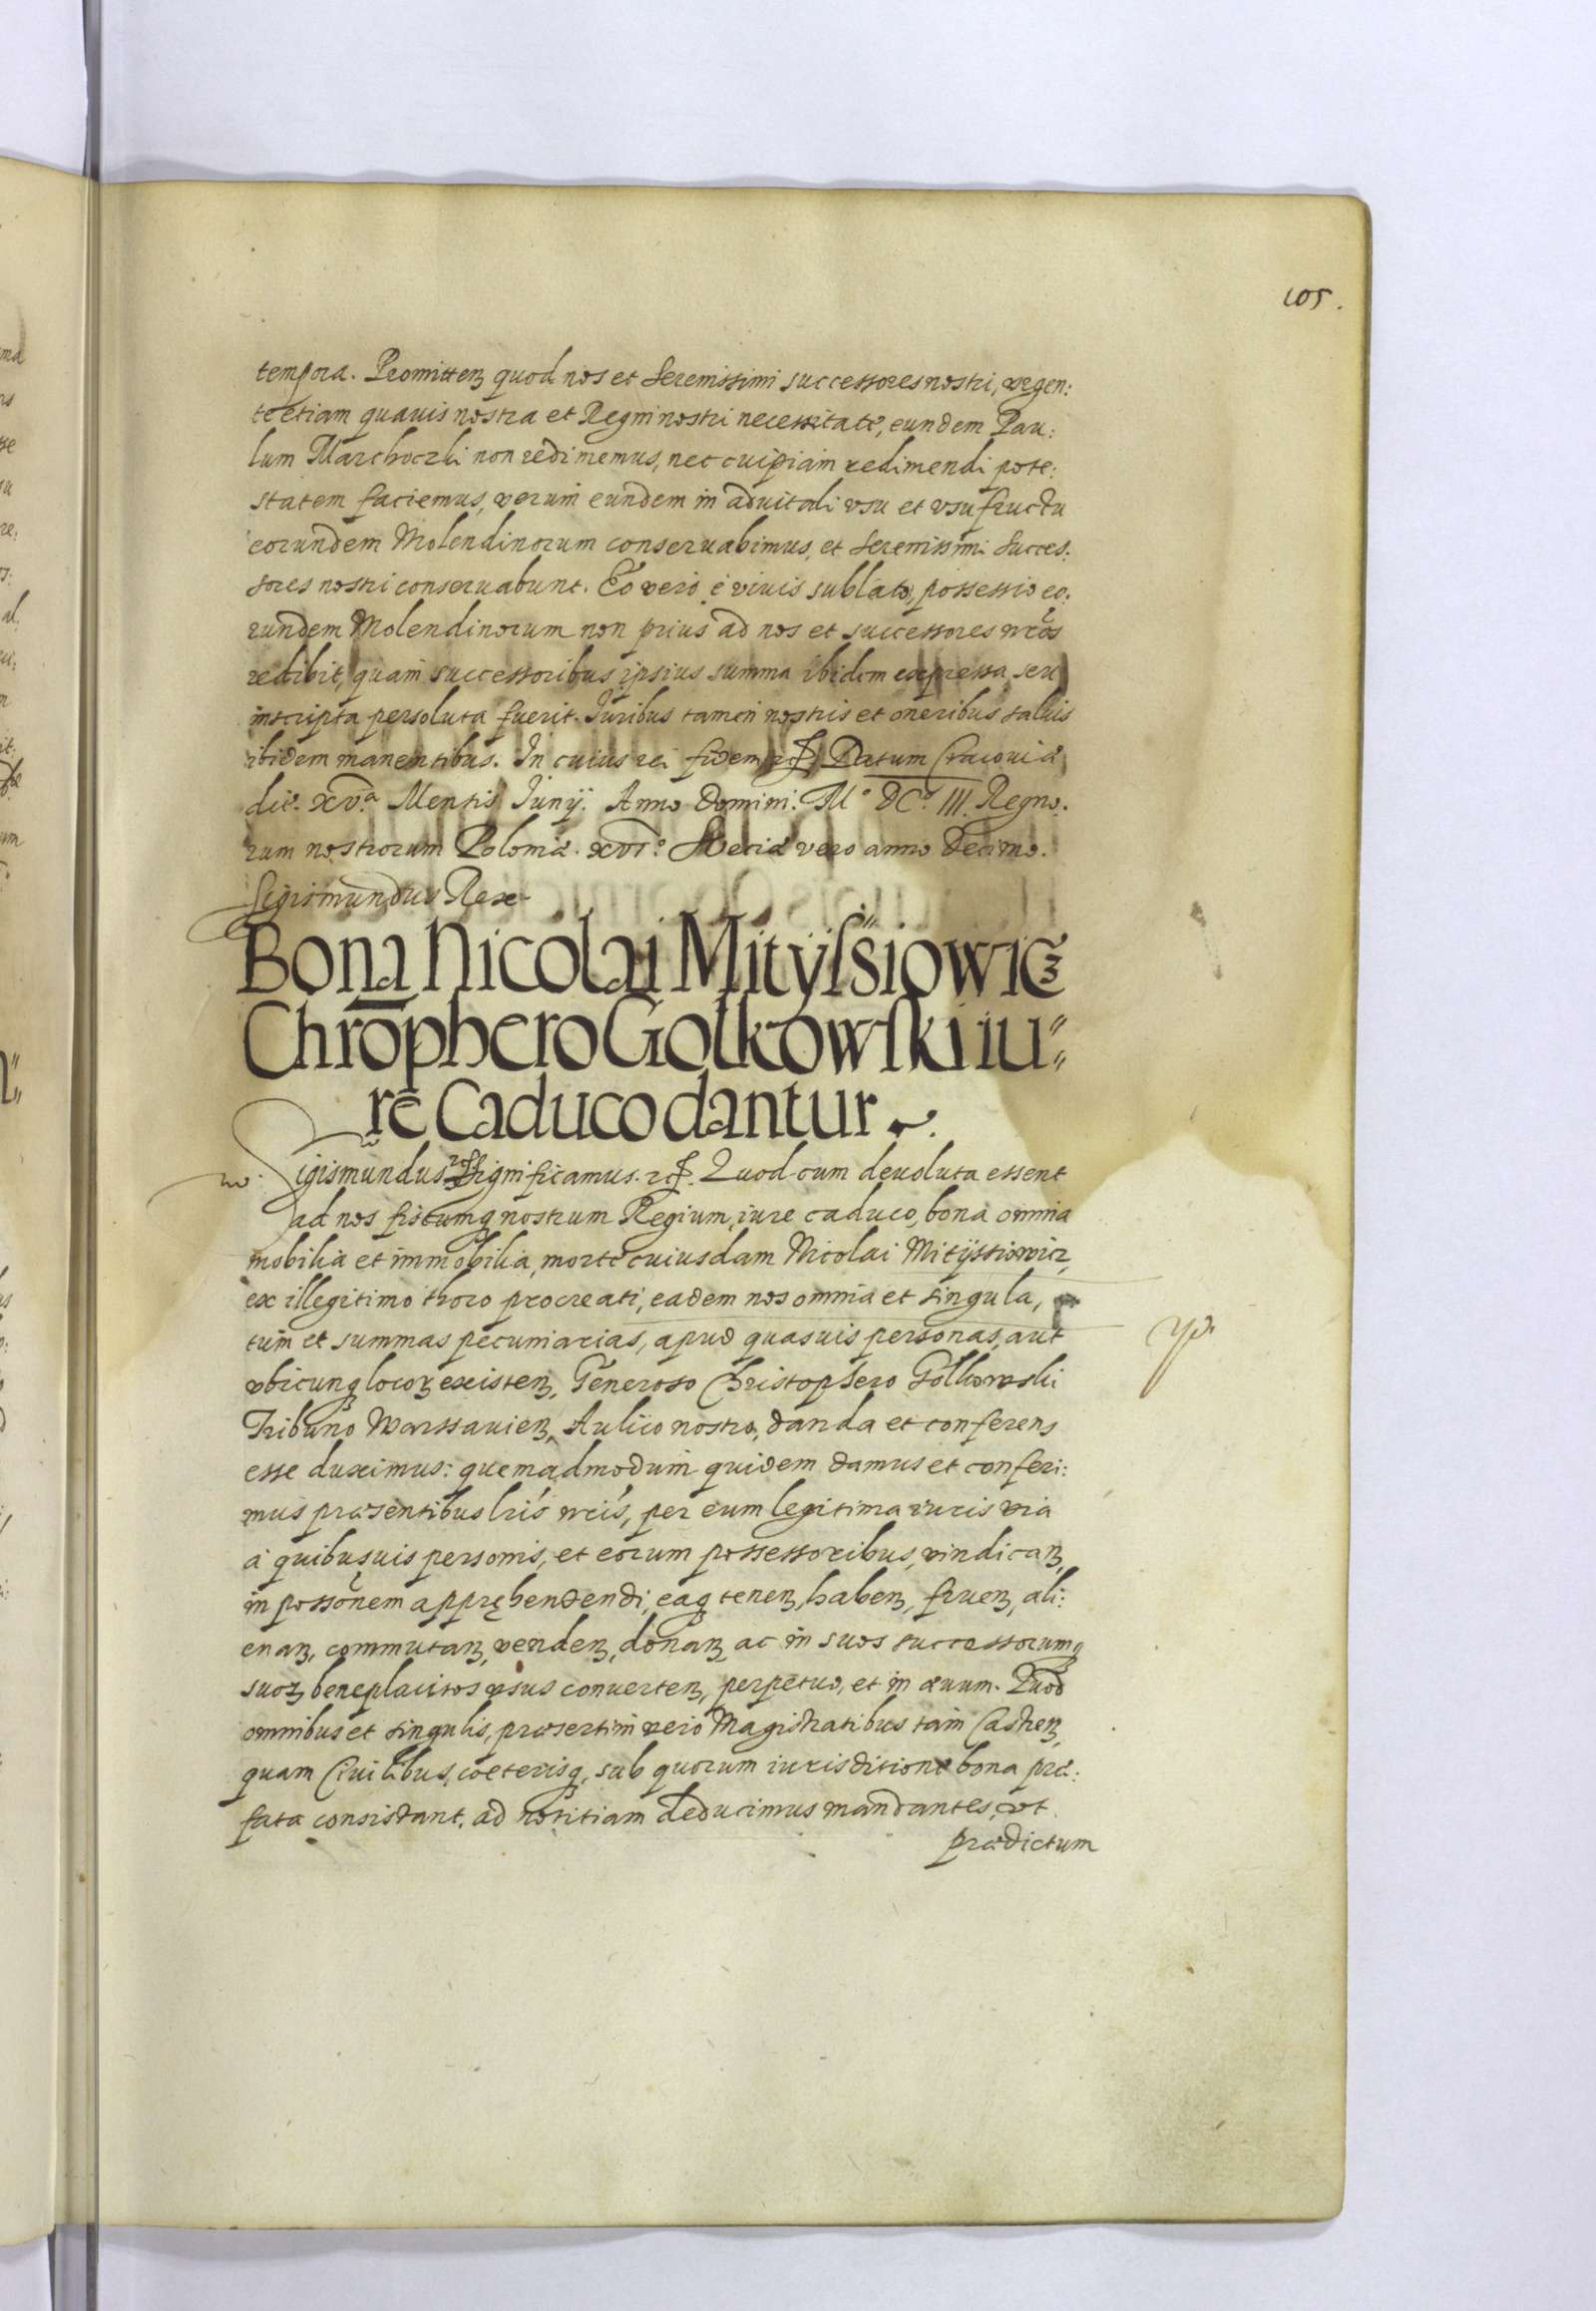 105.
tempora. Promitten quod nos et Serenissimi successores nostri, vrgen:
te etiam quauis nostra et Regni nostri necessitate, eundem Pau:
lum Marchoczki non redimemus, nec cuipiam redimendi pote:
statem faciemus, verum eundem in aduitali vsu et vsufructu
eorundem Molendinorum conseruabimus, et Serenissimi Succes:
sores nostri conseruabunt. Eo vero è viuis sublato, possessio eo:
rundem Molendinorum non prius ad nos et successores nr̃os
redibit, quam successoribus ipsius summa ibidem expressa seu
inscripta persoluta fuerit. Iuribus tamen nostris et oneribus saluis
ibidem manentibus. In cuius rei fidem etc. Datum Cracouiæ
die. xvᵃ. Mensis Iunij. Anno Domini. M° DC° III. Regno.
rum nostrorum Poloniæ. xvi° Sueciæ vero anno decimo.
Sigismundus Rex
Bona Nicolai MitysSiowicz
Chrophero Golkowski iu"
re Caduco dantur.
Sigismundus etc. Significamus. etc. Quod cum deuoluta essent
ad nos fiscumq nostrum Regium, iure caduco, bona omnia
mobilia et immobilia, morte cuiusdam Nicolai Mitijssiowicz,
ex illegitimo thoro procreati, eadem nos omnia et singula,
tum et summas pecuniarias, apud quasuis personas, aut
vbicunq locoꝝ existen, Generoso Christophero Golkowski
Tribuno Warssauien, Aulico nostro, danda et conferens
esse duximus: quemadmodum quidem damus et conferi:
mus præsentibus lr̃is nr̃is, per eum legitima iuris via
à quibusuis personis, et eorum possessoribus, vindican,
in possõnem appręhendendi, eaq tenen, haben, fruen, ali:
enan, commutan, venden, donan, ac in suos successorumq
suoꝝ beneplacitos vsus conuerten, perpetuo, et in æuum. Quod
omnibus et singulis, præsertim vero Magistratibus tam Castren,
quam Ciuilibus, cœterisq, sub quorum iurisditione bona præ:
fata consistant, ad notitiam deducimus mandantes, vt
prædictum